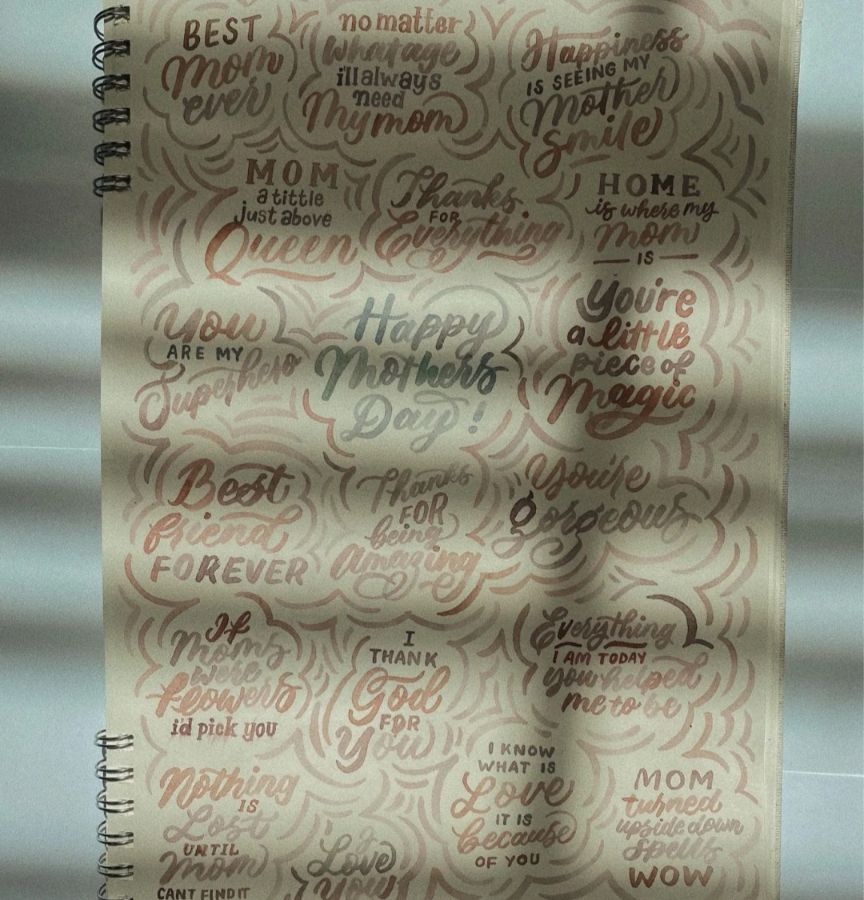 BEST
Mom
ever
no matter
what age
ill always
need
My mom
Happiness
IS SEEING MY
Mother
Smile
MOM
a tittle
just above
Queen
Thanks
FOR
Everything
HOME
is where my
mom
IS
You
ARE MY
Superhero
Happy
Mothers
Day!
You're
a little
piece of
Magic
Best
friend
FOREVER
Thanks
FOR
being
Amazing
You're
gorgeous
If
Moms
were
flowers
i'd pick you
I
THANK
God
FOR
You
Everything
I AM TODAY
you helped
me to be
Nothing
IS
Lost
UNTIL
Mom
CANT FIND IT
I
Love
You
I KNOW
WHAT IS
Love
IT IS
because
OF YOU
MOM
turned
upside down
spells
WOW